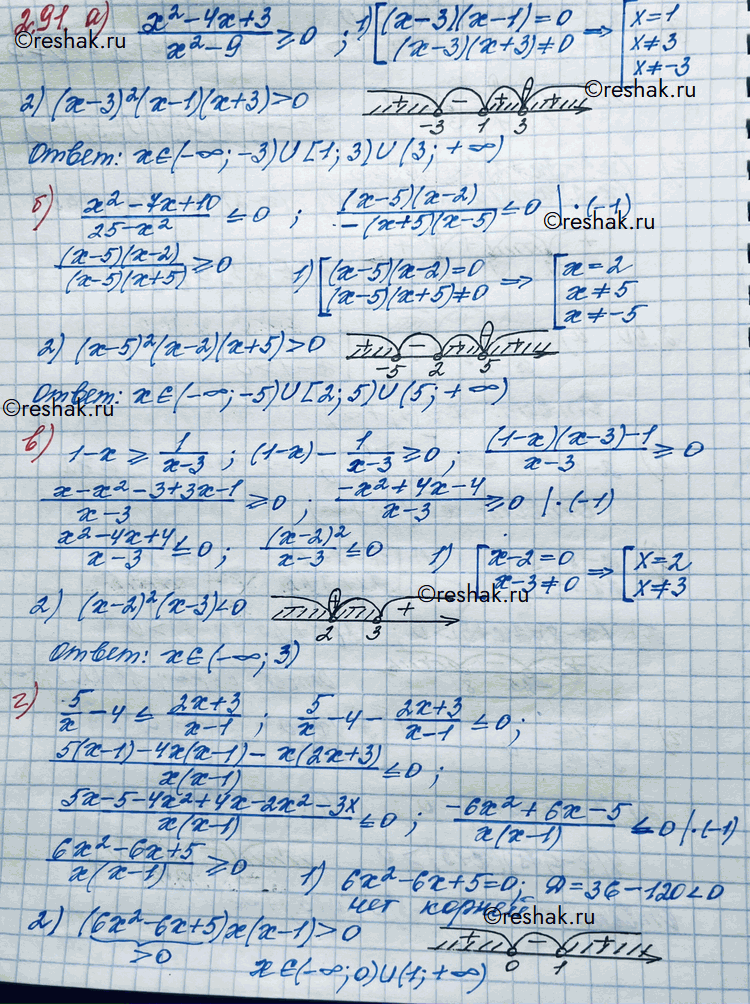 2.91. а) (x² - 4x + 3)/(x² - 9) ≥ 0 ; 1) [ (x-3)(x-1) = 0 ⇒ [ x = 1
(x-3)(x+3) ≠ 0 x ≠ 3
x ≠ -3
©reshak.ru
2) (x-3)²(x-1)(x+3) > 0 + - + +
-3 1 3
©reshak.ru
Ответ: x ∈ (-∞; -3) ∪ [1; 3) ∪ (3; +∞)
б) (x² - 7x + 10)/(25 - x²) ≤ 0 ; (x-5)(x-2)/(-(x+5)(x-5)) ≤ 0 | · (-1)
©reshak.ru
(x-5)(x-2)/((x-5)(x+5)) ≥ 0 1) [ (x-5)(x-2) = 0 ⇒ [ x = 2
(x-5)(x+5) ≠ 0 x ≠ 5
x ≠ -5
2) (x-5)²(x-2)(x+5) > 0
-5 2 5
Ответ: x ∈ (-∞; -5) ∪ [2; 5) ∪ (5; +∞)
©reshak.ru
в) 1 - x ≥ 1/(x-3) ; (1-x) - 1/(x-3) ≥ 0 ; ((1-x)(x-3) - 1)/(x-3) ≥ 0
(x - x² - 3 + 3x - 1)/(x-3) ≥ 0 ; (-x² + 4x - 4)/(x-3) ≥ 0 | · (-1)
(x² - 4x + 4)/(x-3) ≤ 0 ; (x-2)²/(x-3) ≤ 0 1) [ x - 2 = 0 ⇒ [ x = 2
x - 3 ≠ 0 x ≠ 3
©reshak.ru
2) (x-2)²(x-3) < 0 +
2 3
Ответ: x ∈ (-∞; 3)
г) 5/x - 4 ≤ (2x+3)/(x-1) ; 5/x - 4 - (2x+3)/(x-1) ≤ 0 ;
(5(x-1) - 4x(x-1) - x(2x+3))/(x(x-1)) ≤ 0 ;
(5x - 5 - 4x² + 4x - 2x² - 3x)/(x(x-1)) ≤ 0 ; (-6x² + 6x - 5)/(x(x-1)) ≤ 0 | · (-1)
(6x² - 6x + 5)/(x(x-1)) ≥ 0 1) 6x² - 6x + 5 = 0 ; Д = 36 - 120 < 0
нет корней
©reshak.ru
2) (6x² - 6x + 5)x(x-1) > 0 + - +
> 0 0 1
x ∈ (-∞; 0) ∪ (1; +∞)